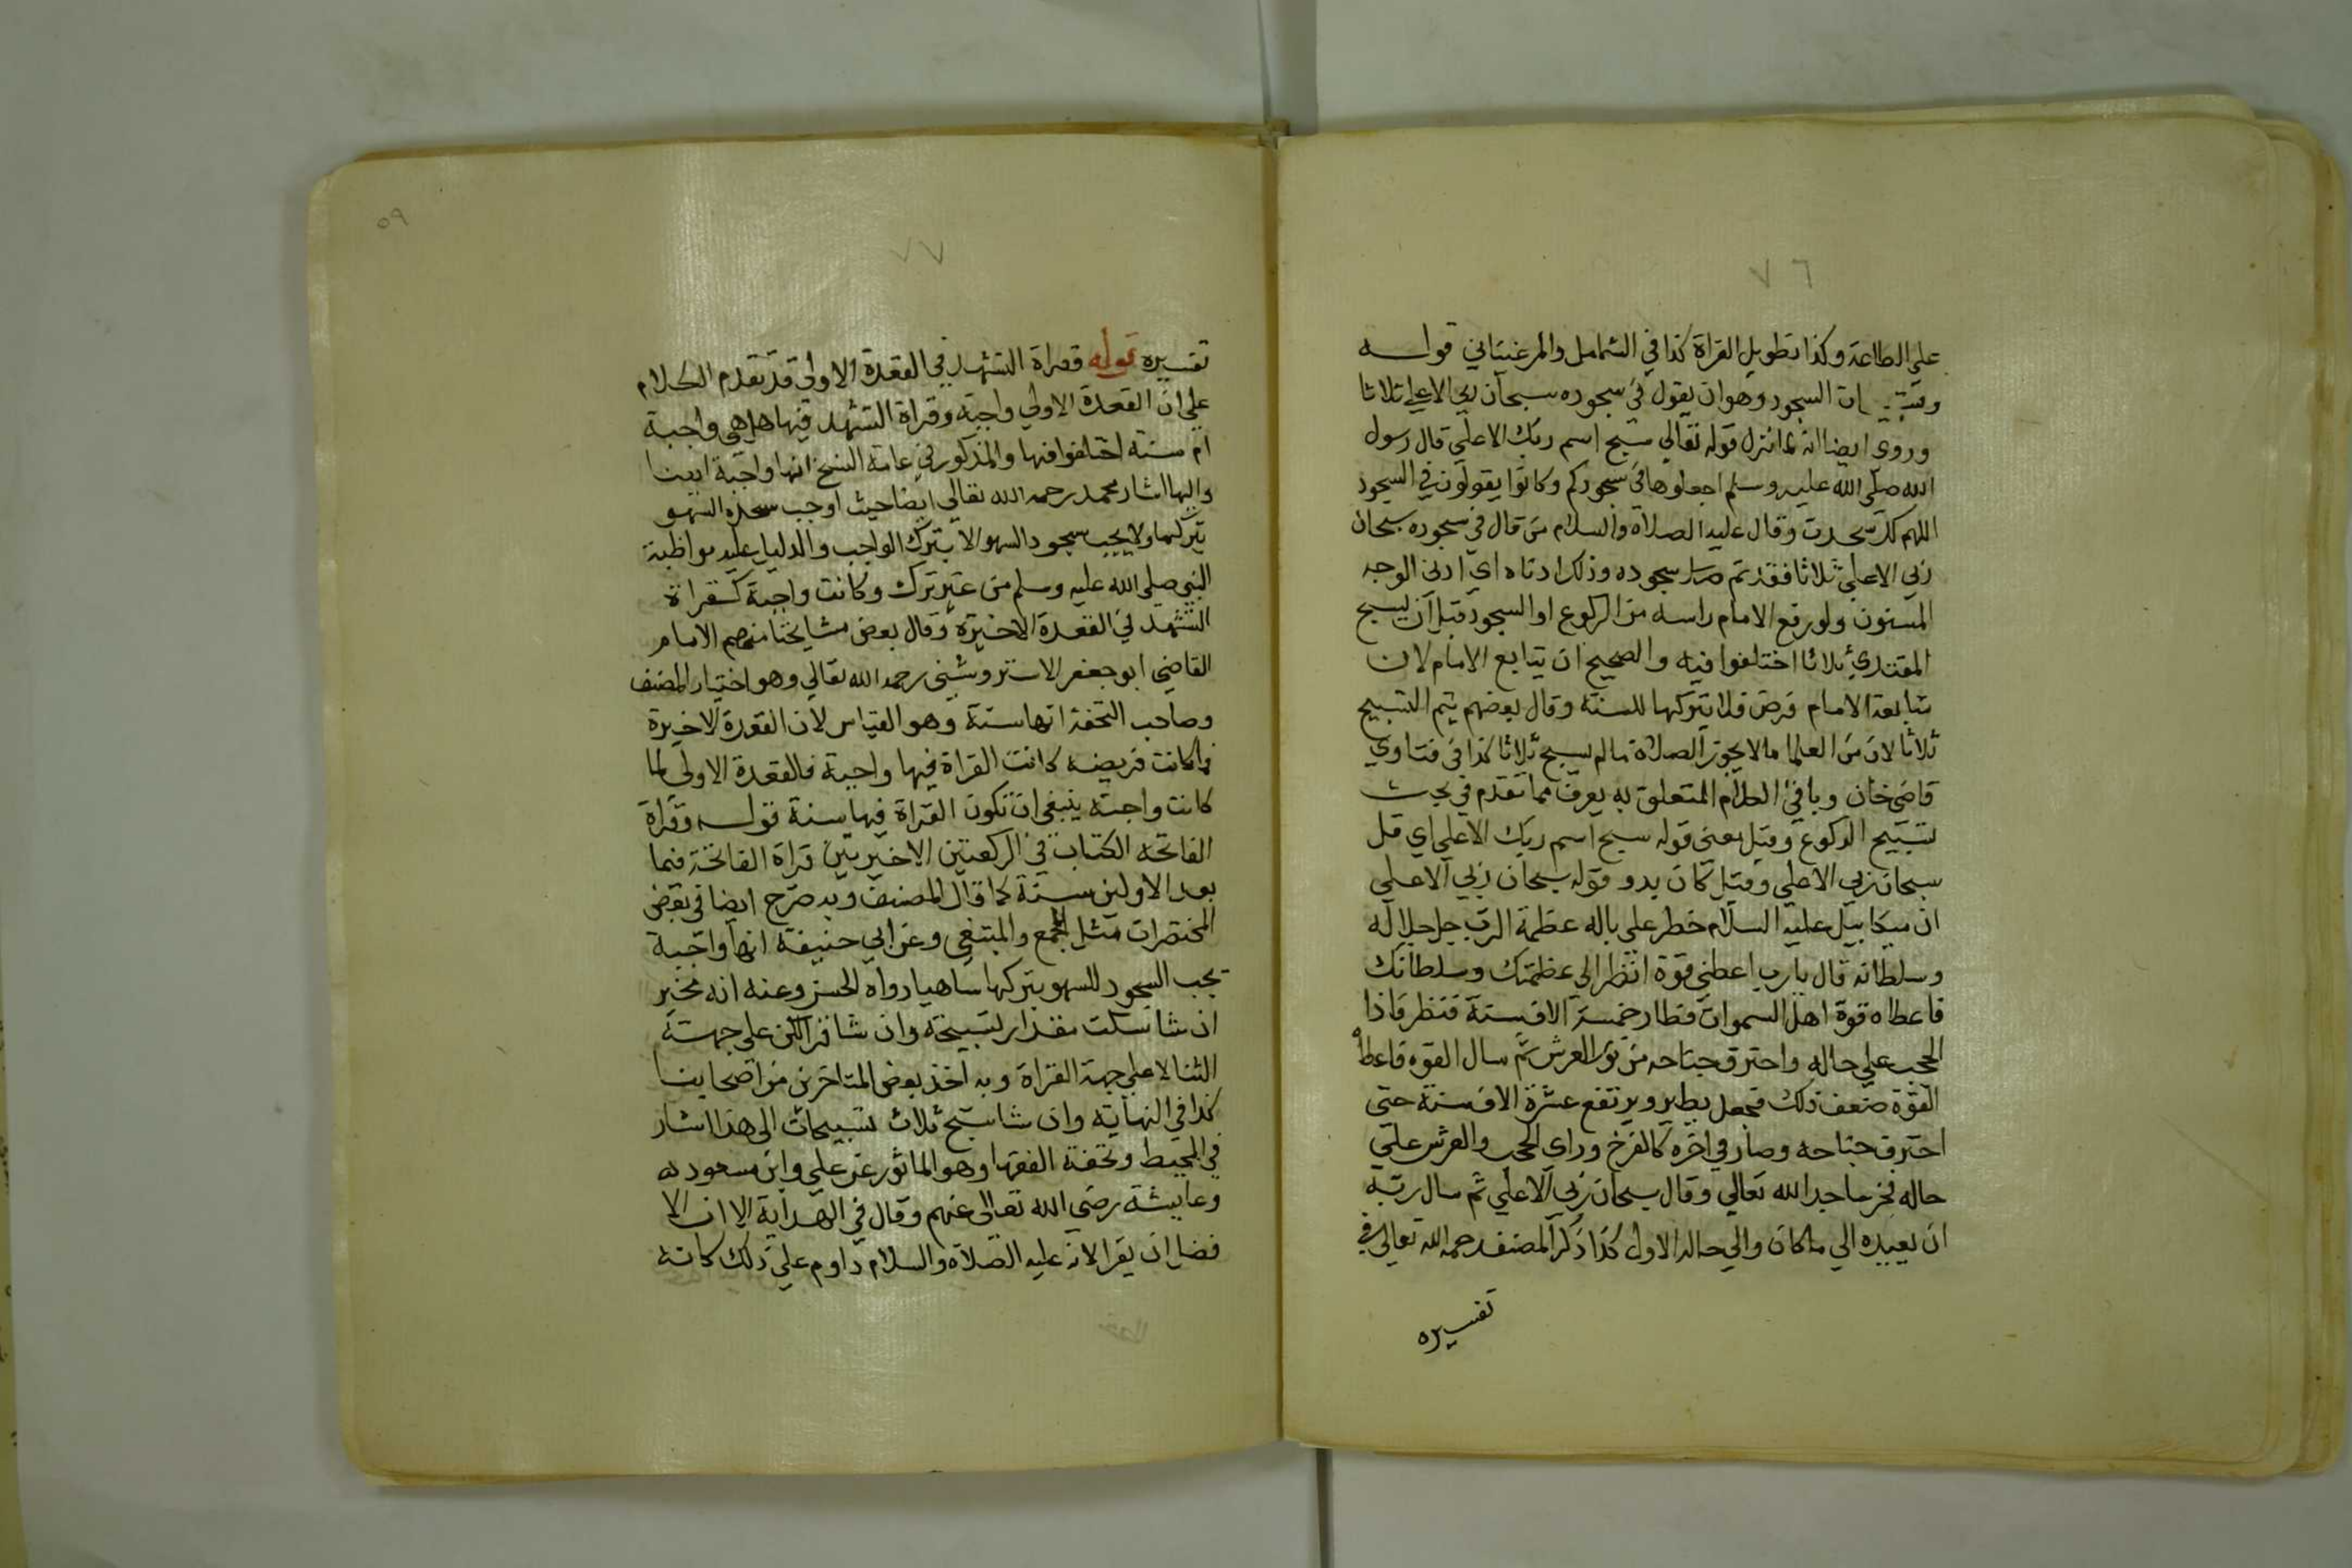 ٧٦
علي الطاعة وكذا تطويل القراة كذا في الشامل والمرغيناني قوله
السجود وهو ان يقول في سجوده سبحان ربي الاعلي ثلاثا
وروي ايضا انه لما نزل قوله تعالي سبح اسم ربك الاعلي قال رسول
الله صلي الله عليه وسلم اجعلوها في سجودكم وكانوا يقولون في السجود
اللهم لك سجدت وقال عليه الصلاة والسلام من قال في سجوده سبحان
ربي الاعلي ثلاثا فقد تم سجوده وذلك ادناه اي ادني الوجه
المسنون ولو رفع الامام راسه من الركوع او السجود قبل ان يسبح
المقتدي ثلاثا اختلفوا فيه والصحيح ان يتابع الامام لان
متابعة الامام فرض فلا يتركها للسنة وقال بعضهم يتم التسبيح
ثلاثا لان من العلما من لا يجوز الصلاة ما لم يسبح ثلاثا كذا في فتاوي
قاضي خان وباقي الكلام المتعلق به يعرف مما تقدم في بحث
تسبيح الركوع وقيل معني قوله سبح اسم ربك الاعلي اي قل
سبحان ربي الاعلي وقيل كان بدو قوله سبحان ربي الاعلي
ان ميكاييل عليه السلام خطر علي باله عظمة الرب جل جلاله
وسلطانه قال يارب اعطني قوة انظر الي عظمتك وسلطانك
فاعطاه قوة اهل السموات فطار خمسة الاف سنة فنظر فاذا
الحجب علي حاله واحترق جناحه من نور العرش ثم سال القوه فاعطاه
القوة ضعف ذلك فجعل يطير ويرتفع عشرة الاف سنة حتي
احترق جناحه وصار في اخره كالفرخ وراي الحجب والعرش علي
حاله فخر ساجدا لله تعالي وقال سبحان ربي الاعلي ثم سال ربه
ان يعيده الي ماكان والي حاله الاول كذا ذكر المصنف رحمه الله تعالي في
تفسيره
٥٩
٧٧
تفسيره قوله وقراة التشهد في القعدة الاولي قد تقدم الكلام
علي ان القعدة الاولي واجبة وقراة التشهد فيها هل هي واجبة
ام سنة اختلفوا فيها والمذكور في عامة النسخ انها واجبة ايضا
واليها اشار محمد رحمه الله تعالي ايضا حيث اوجب سجدة السهو
بتركها ولا يجب سجود السهو الا بترك الواجب والدليل عليه مواظبة
النبي صلي الله عليه وسلم من غير ترك وكانت واجبة كقراة
التشهد في القعدة الاخيرة وقال بعض مشايخنا منهم الامام
القاضي ابو جعفر الاستروشني رحمه الله تعالي وهو اختيار المصنف
وصاحب التحفة انها سنة وهو القياس لان القعدة الاخيرة
لما كانت فريضه كانت القراة فيها واجبة فالقعدة الاولي لما
كانت واجبة ينبغي ان تكون القراة فيها سنة قوله وقراة
الفاتحه الكتاب في الركعتين الاخيريين قراة الفاتحة فيما
بعد الاولين سنة كما قال المصنف وبه صرح ايضا في بعض
المختصرات مثل المجمع والمبتغي وعن ابي حنيفة انها واجبة
يجب السجود للسهو بتركها ساهيا رواه الحسن وعنه انه مخير
ان شا سكت مقدار تسبيحة وان شا قرا لكن علي جهة
الثنا لا علي جهة القراة وبه اخذ بعض المتاخرين من اصحابنا
كذا في النهاية وان شا سبح ثلاث تسبيحات الي هذا اشار
في المحيط وتحفة الفقها وهو الماثور عن علي وابن مسعود
وعايشة رضي الله تعالي عنهم وقال في الهداية الا ان الا
فضل ان يقرا لانه عليه الصلاة والسلام داوم علي ذلك كانه